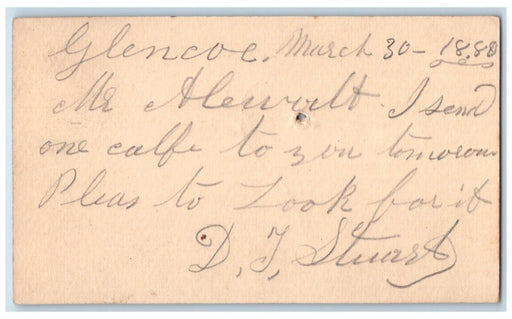 Glencoe. March 30 - 1888
Mr Alewalt. I send
one calfe to you tomorow
Pleas to Look for it
D. F. Stuart